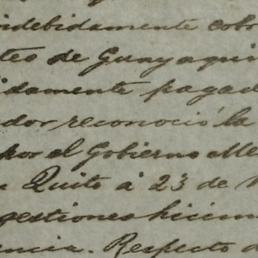 indebidamente cobr
tes de Guayaqui
idamente pagad
dor reconoció la
por el Gobierno Me
Quito á 23 de
gestiones hicim
encia. Respecto d